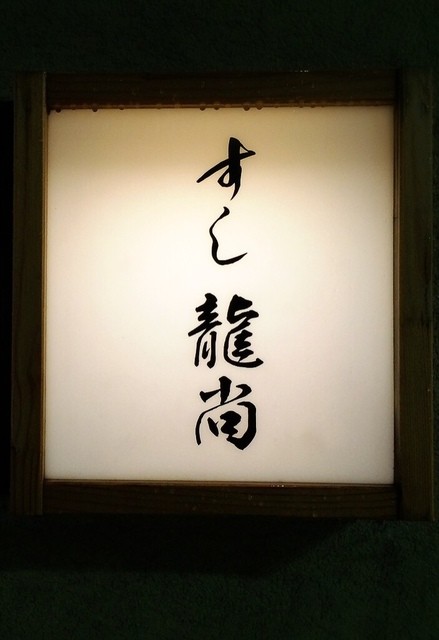 すし 龍尚